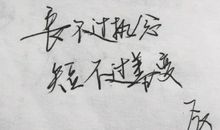 长不过执念
短不过善变